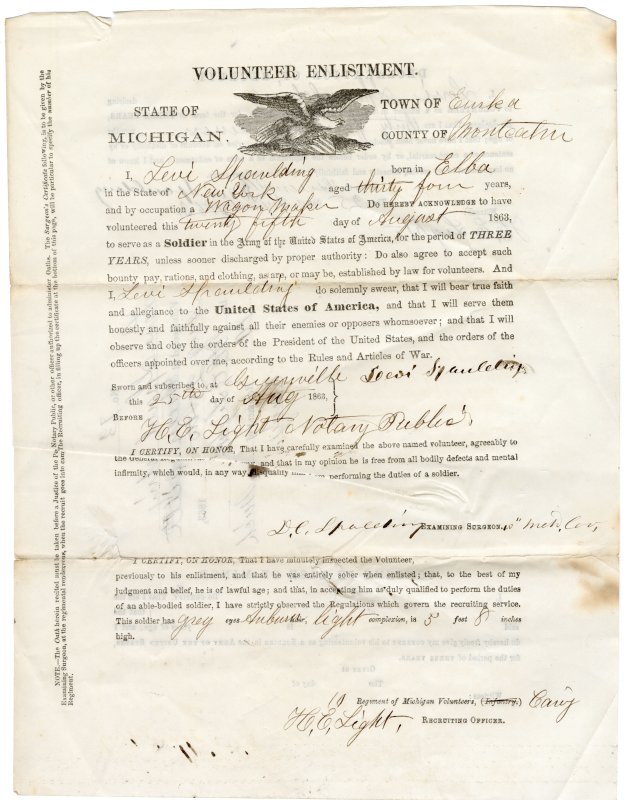 VOLUNTEER ENLISTMENT.
STATE OF MICHIGAN.
TOWN OF Eureka
COUNTY OF Montcalm
I, Levi Spaulding born in Elba
in the State of New York aged thirty four years,
and by occupation a Wagon Maker Do HEREBY ACKNOWLEDGE to have
volunteered this twenty fifth day of August 1863,
to serve as a Soldier in the Army of the United States of America, for the period of THREE
YEARS, unless sooner discharged by proper authority: Do also agree to accept such
bounty pay, rations, and clothing, as are, or may be, established by law for volunteers. And
I, Levi Spaulding do solemnly swear, that I will bear true faith
and allegiance to the United States of America, and that I will serve them
honestly and faithfully against all their enemies or opposers whomsoever; and that I will
observe and obey the orders of the President of the United States, and the orders of the
officers appointed over me, according to the Rules and Articles of War.
Sworn and subscribed to, at Greenville Levi Spaulding
this 25th day of Aug 1863,
BEFORE H. E. Light Notary Public.
I CERTIFY, ON HONOR, That I have carefully examined the above named volunteer, agreeably to
the General Regulations and that in my opinion he is free from all bodily defects and mental
infirmity, which would, in any way performing the duties of a soldier.
D. C. Spaulding EXAMINING SURGEON, Mich. Cav,
I CERTIFY, ON HONOR, That I have minutely inspected the Volunteer,
previously to his enlistment, and that he was entirely sober when enlisted; that, to the best of my
judgment and belief, he is of lawful age; and that, in accepting him as duly qualified to perform the duties
of an able-bodied soldier, I have strictly observed the Regulations which govern the recruiting service.
This soldier has grey eyes Auburn hair, light complexion, is 5 feet 8 inches
high.
10 Regiment of Michigan Volunteers, (Infantry.) Cavy
H. E. Light, RECRUITING OFFICER.
NOTE.—The Oath herein recited must be taken before a Justice of the Peace, Notary Public, or other officer authorized to administer Oaths. The Surgeon's Certificate following, is to be given by the
Examining Surgeon, at the regimental rendezvous, when the recruit goes into camp. The Recruiting officer, in filling up the certificate at the bottom of this page, will be particular to specify the number of his
Regiment.